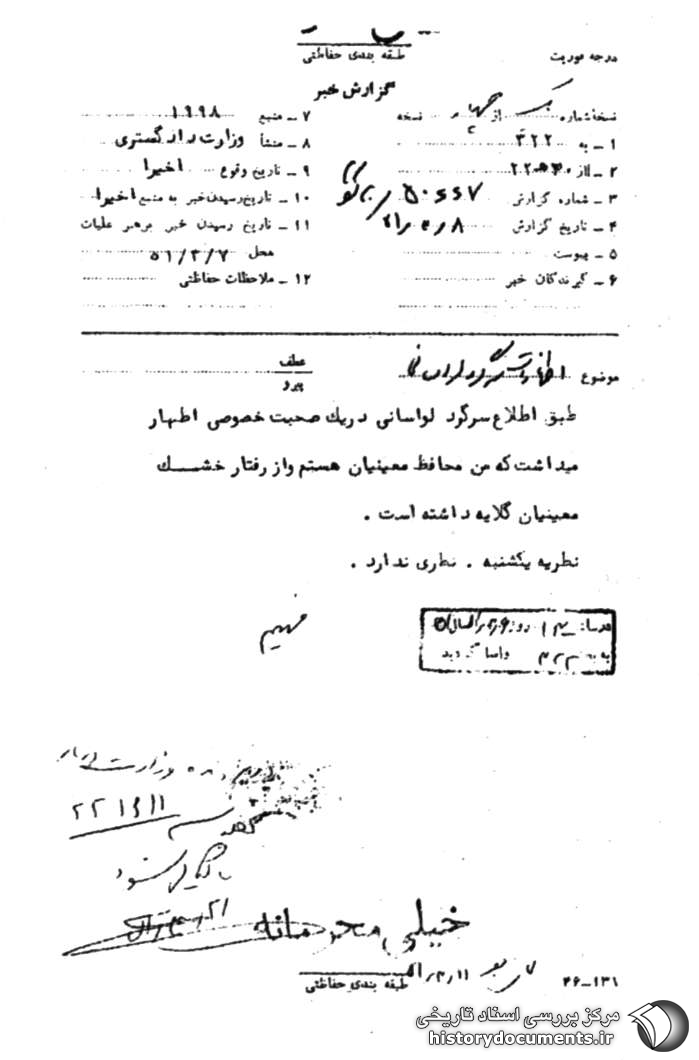 طبقه بندی حفاظتی
درجه فوریت
گزارش خبر
نسخه شماره یک از چهار نسخه
۱ – به ۳۲۲
۲ – از
۳ – شماره گزارش
۴ – تاریخ گزارش
۵ – پیوست
۶ – گیرندگان خبر
۷ – منبع ۱۹۹۸
۸ – منشأ وزارت دادگستری
۹ – تاریخ وقوع اخیرا
۱۰ – تاریخ رسیدن خبر به منبع اخیرا
۱۱ – تاریخ رسیدن خبر برهبر عملیات
محل ۵۱/۳/۷
۱۲ – ملاحظات حفاظتی
موضوع اظهارات سرگرد لواسانی
عطف
پیرو
طبق اطلاع سرگرد لواسانی دریک صحبت خصوصی اظهار
میداشت که من محافظ معینیان هستم واز رفتار خشک
معینیان گلایه داشته است .
نظریه یکشنبه . نظری ندارد .
فهیم
بایگانی شود
خیلی محرمانه
طبقه بندی حفاظتی
۴۶–۱۳۱
مرکز بررسی اسناد تاریخی
historydocuments.ir